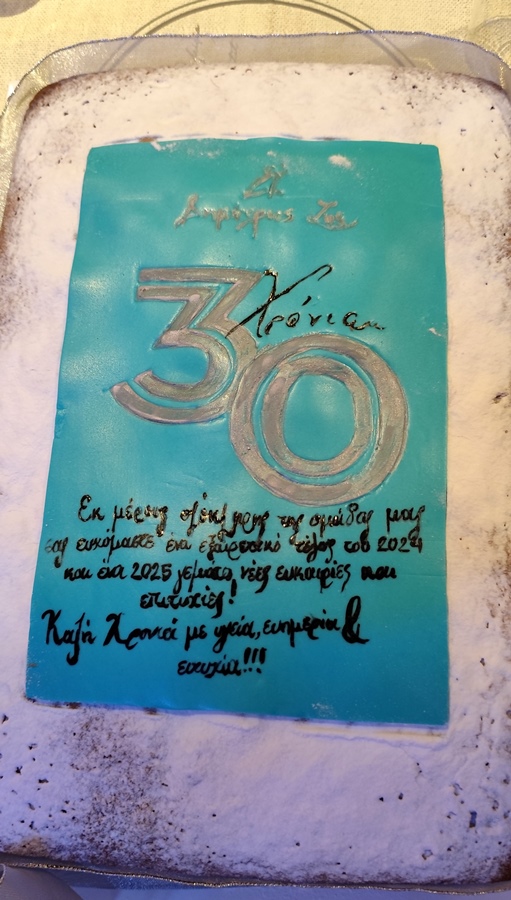 30
Χρόνια
Εκ μέρους ολόκληρης της ομάδας μας
σας ευχόμαστε ένα εξαιρετικό τέλος του 2024
και ένα 2025 γεμάτο νέες ευκαιρίες και
επιτυχίες!
Καλή Χρονιά με υγεία, ευημερία &
ευτυχία!!!